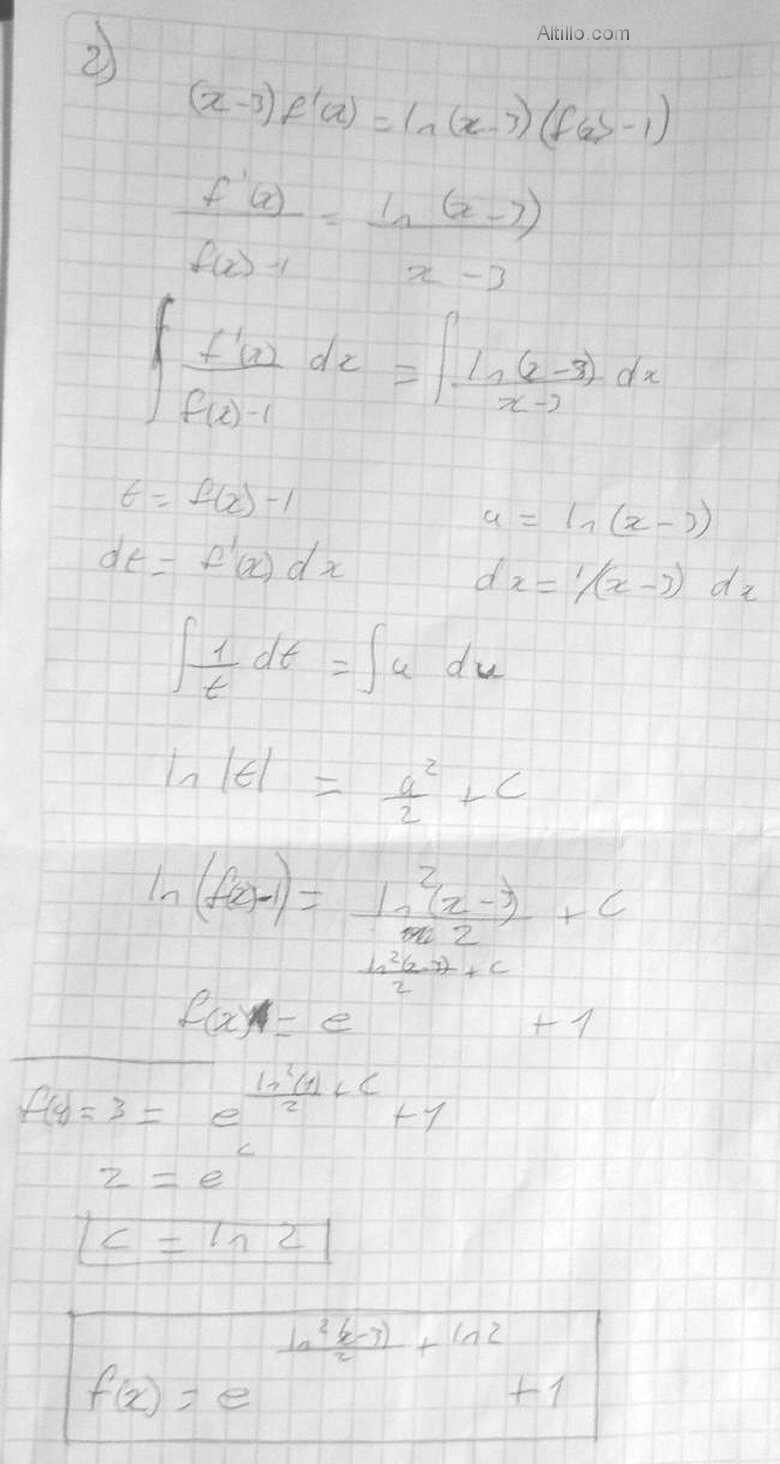 Altillo.com
2)
(x-3) f'(x) = ln(x-3) (f(x) - 1)
f'(x) / f(x)-1 = ln(x-3) / x-3
∫ f'(x) / f(x)-1 dx = ∫ ln(x-3) / x-3 dx
t = f(x)-1 u = ln(x-3)
dt = f'(x) dx dx = 1/(x-3) dx
∫ 1/t dt = ∫ u du
ln |t| = u²/2 + C
ln(f(x)-1) = ln²(x-3) / 2 + C
f(x) = e^(ln²(x-3)/2 + C) + 1
f(4) = 3 = e^(ln²(1)/2 + C) + 1
2 = e^C
C = ln 2
f(x) = e^(ln²(x-3)/2 + ln 2) + 1